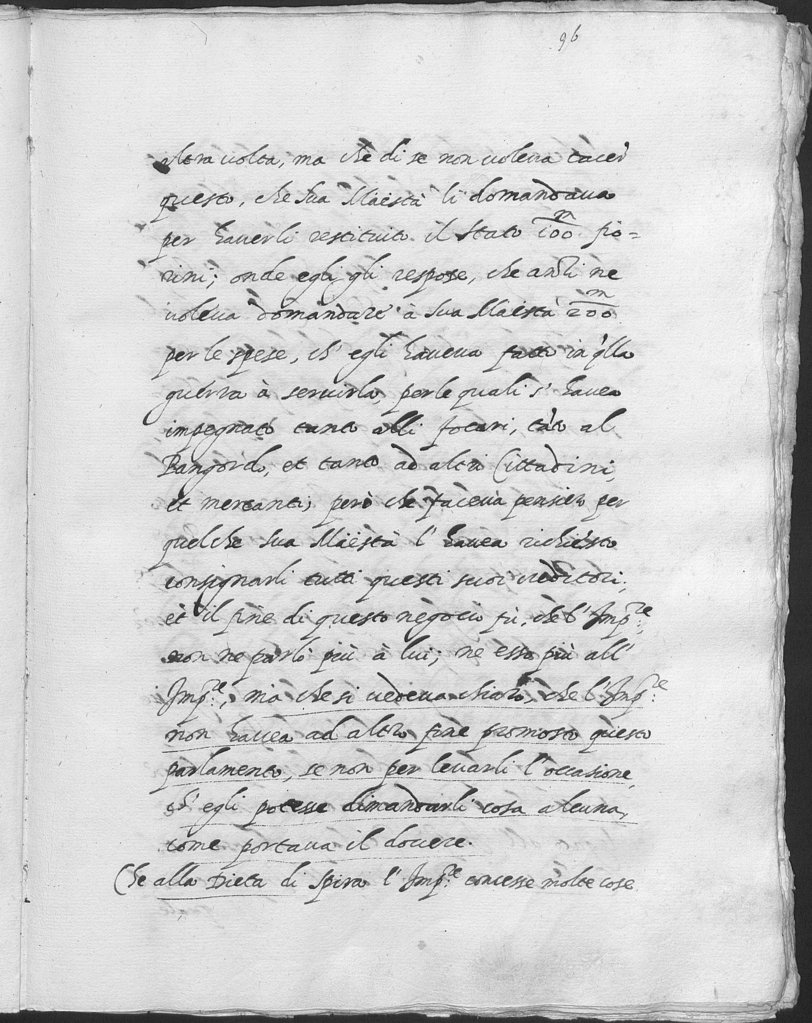 96
altra uolta, ma che di se non uoleua tacer
questo, che Sua Maestà li domandaua
per hauerli restituito il Stato 100m fio=
rini; onde egli gli respose, che anzi ne
uoleua domandare à Sua Maestà 200m
per le spese, ch' egli haueua fatto in q̃lla
guerra à seruirlo, per le quali s' hauea
impegnato tanto alli focari, tãto al
et tanto ad altri Cittadini,
et mercanti, però che faceua pensier per
quel che Sua Maestà l' hauea richiesto
consignarli tutti questi suoi creditori;
et il fine di questo negocio fù, che l' Imp.re
non ne parlò più à lui; ne esso più all'
Imp.re, ma che si uedeua chiaro, che l' Imp.re
non hauea ad altro fine promosso questo
parlamento, se non per leuarli l' occasione,
ch' egli potesse dimandarli cosa alcuna,
come portaua il douere.
Che alla Dieta di Spira l' Imp.re concesse molte cose